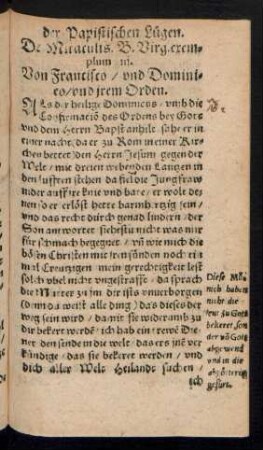 der Papistischen Lügen.
De Miraculis. B. Virg. exem-
plum iii.
Von Francisco / vnd Domini-
co / vnd jrem Orden.
ALs der heilige Dominicus / vmb die
Confirmatiō des Ordens bey Gott
vnd dem Herrn Bapst anhilt sahe er in
einer nacht / da er zu Rom in einer Kir-
chen bettet / den Herrn Jesum gegen der
Welt / mit dreien Lantzen in
den lufften stehen da fiel die Jungfraw
nider auff jre knie vnd bate / er wolt de-
nen so er erlöst hette barmhertzig sein /
vnd das recht durch genad lindern / der
Son antwortet siehestu nicht was mir
für schmach begegnet / vñ wie mich die
bösen Christen mit jren sünden noch ein
mal Creutzigen mein gerechtigkeit lest
solch vbel nicht vngestrafft / da sprach
die Mutter zu jm dir ists vnuerborgen
(denn du weist alle ding) das dieses der
weg sein wird / damit sie widerumb zu
dir bekert werdē / ich hab ein
ner den sende in die welt / das ers jnē ver
kündige / das sie bekeret werden / vnd
dich aller Welt Heilande suchen /
ich
Diese Mü
nich haben
nicht die
leut zu Gott
bekeret, son
der võ Gott
abgewend
vnd in die
abgötterey
gefürt.